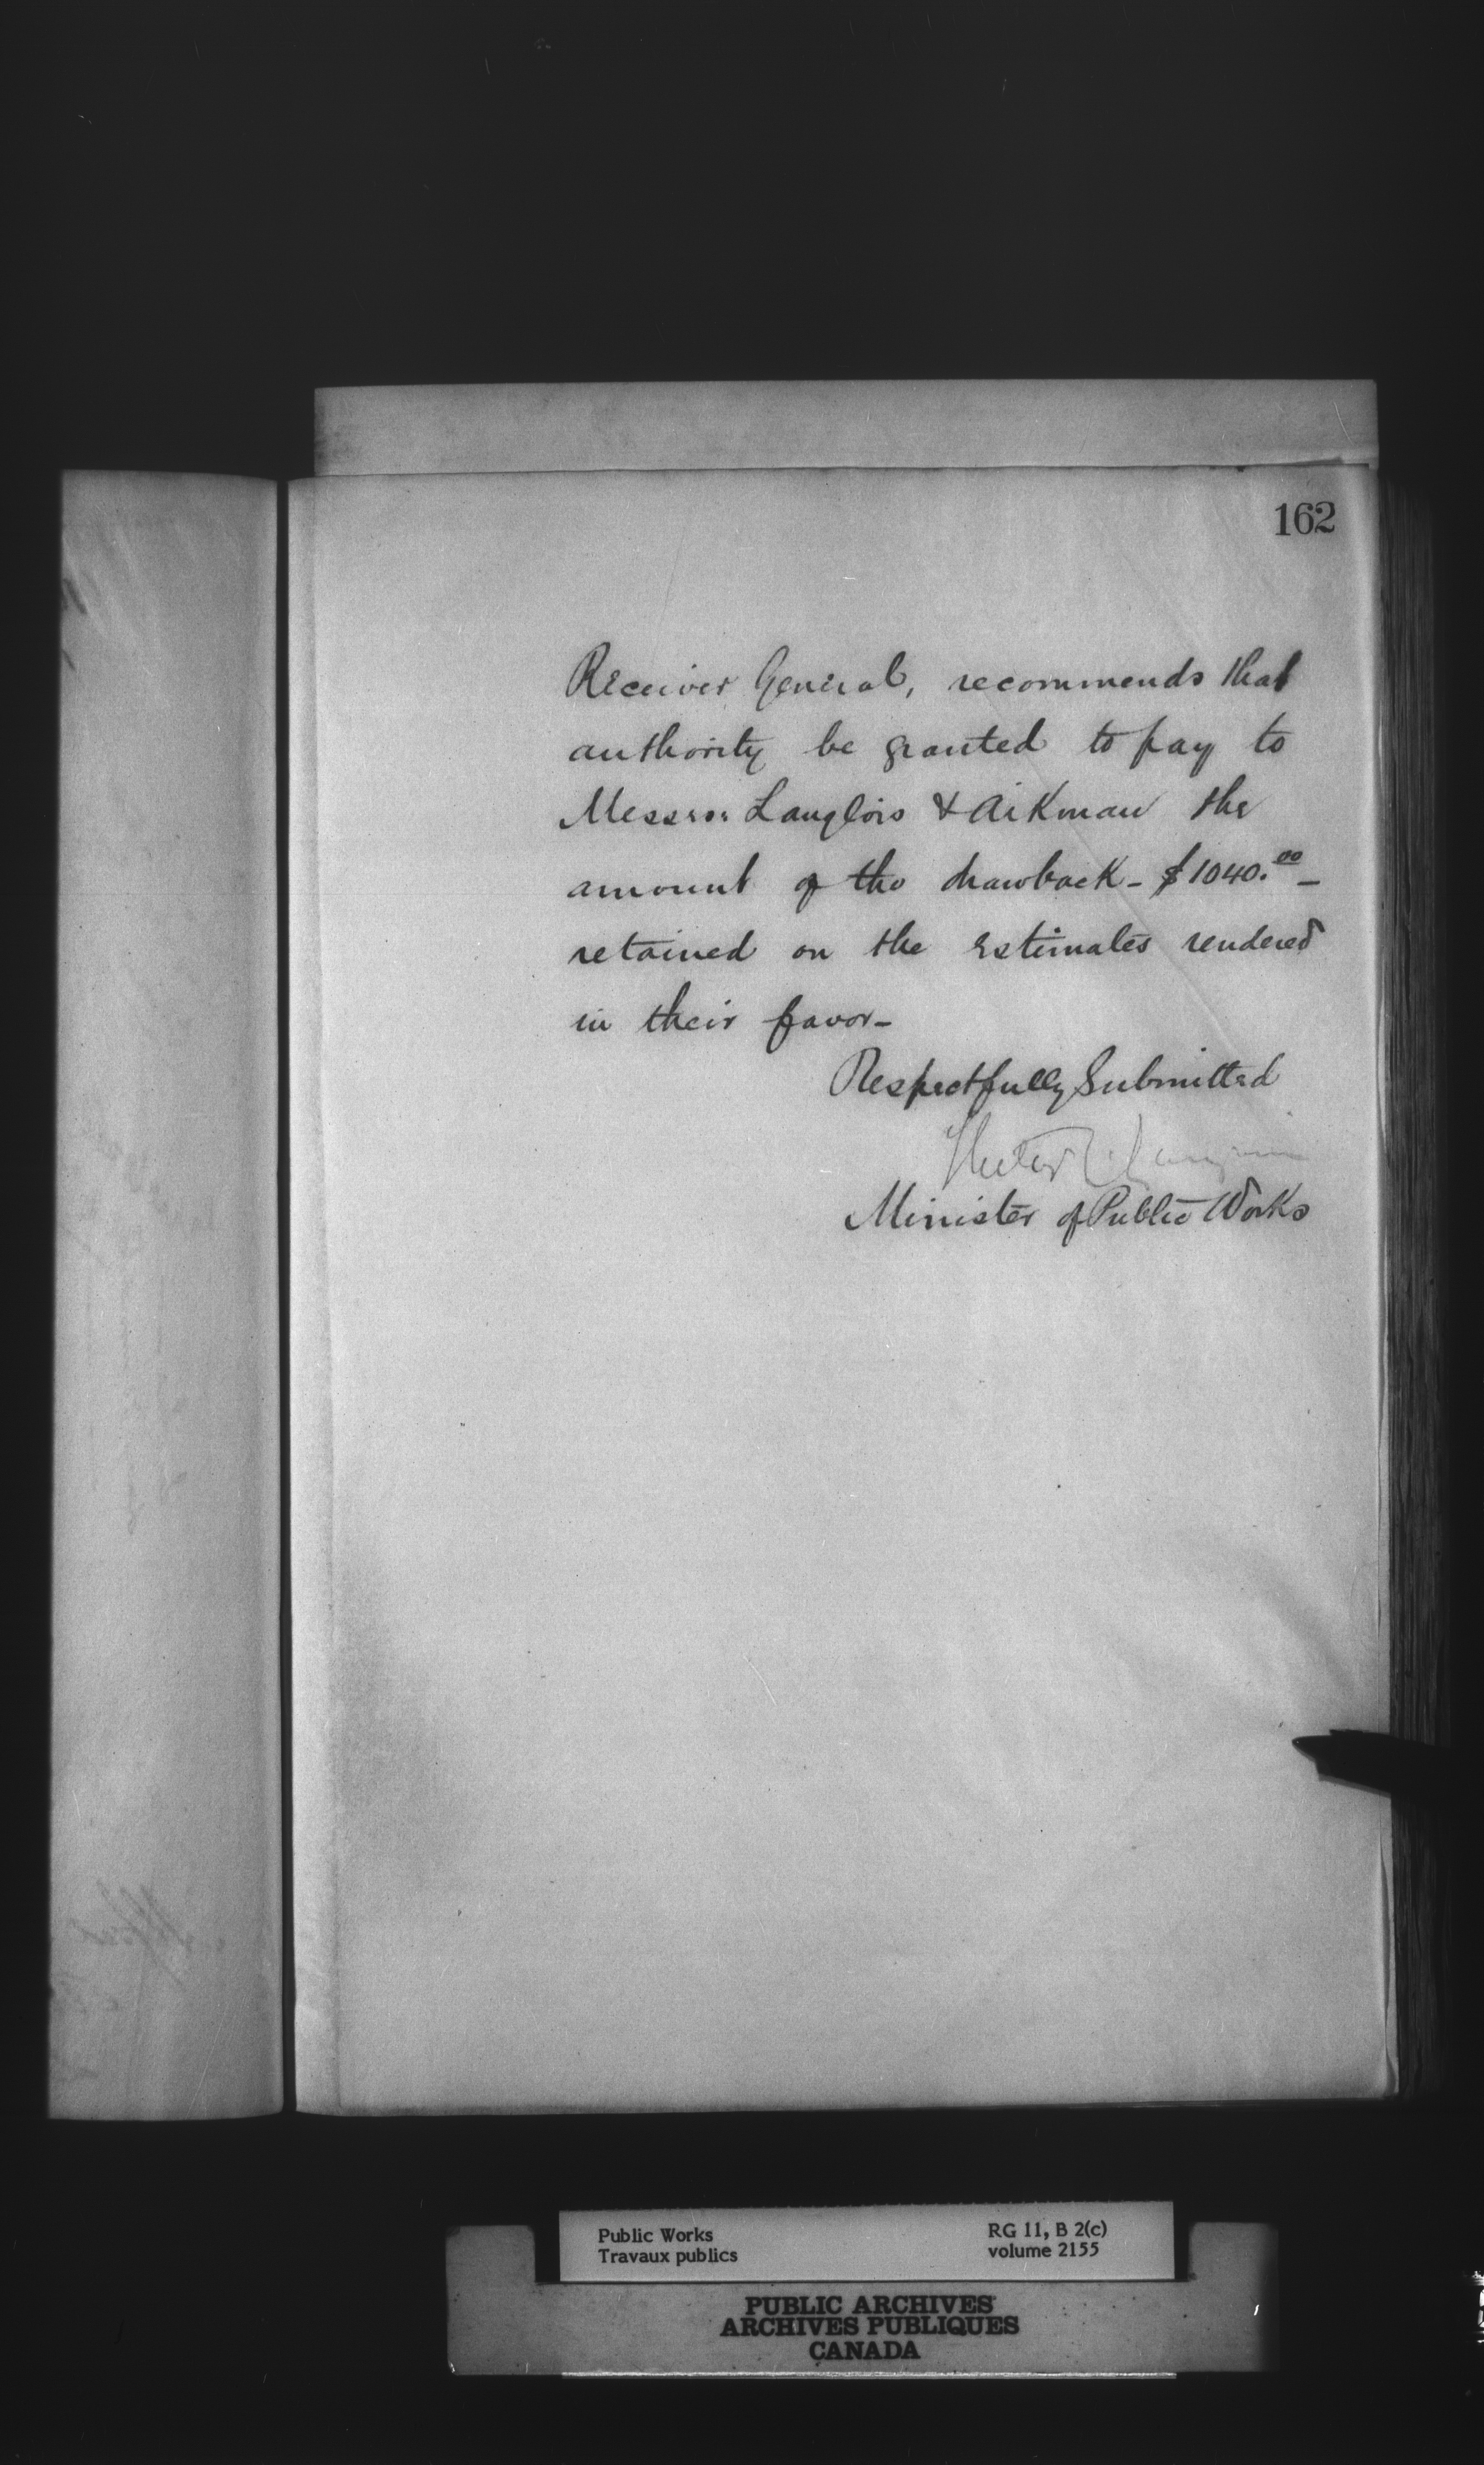 162
Receiver General, recommends that
authority be granted to pay to
Messrs: Langlois & Aikman the
amount of the drawback - $1040.00 -
retained on the Estimates rendered
in their favor -
Respectfully Submitted
Hector L. Langevin
Minister of Public Works
Public Works
Travaux publics
RG 11, B 2(c)
volume 2155
PUBLIC ARCHIVES
ARCHIVES PUBLIQUES
CANADA